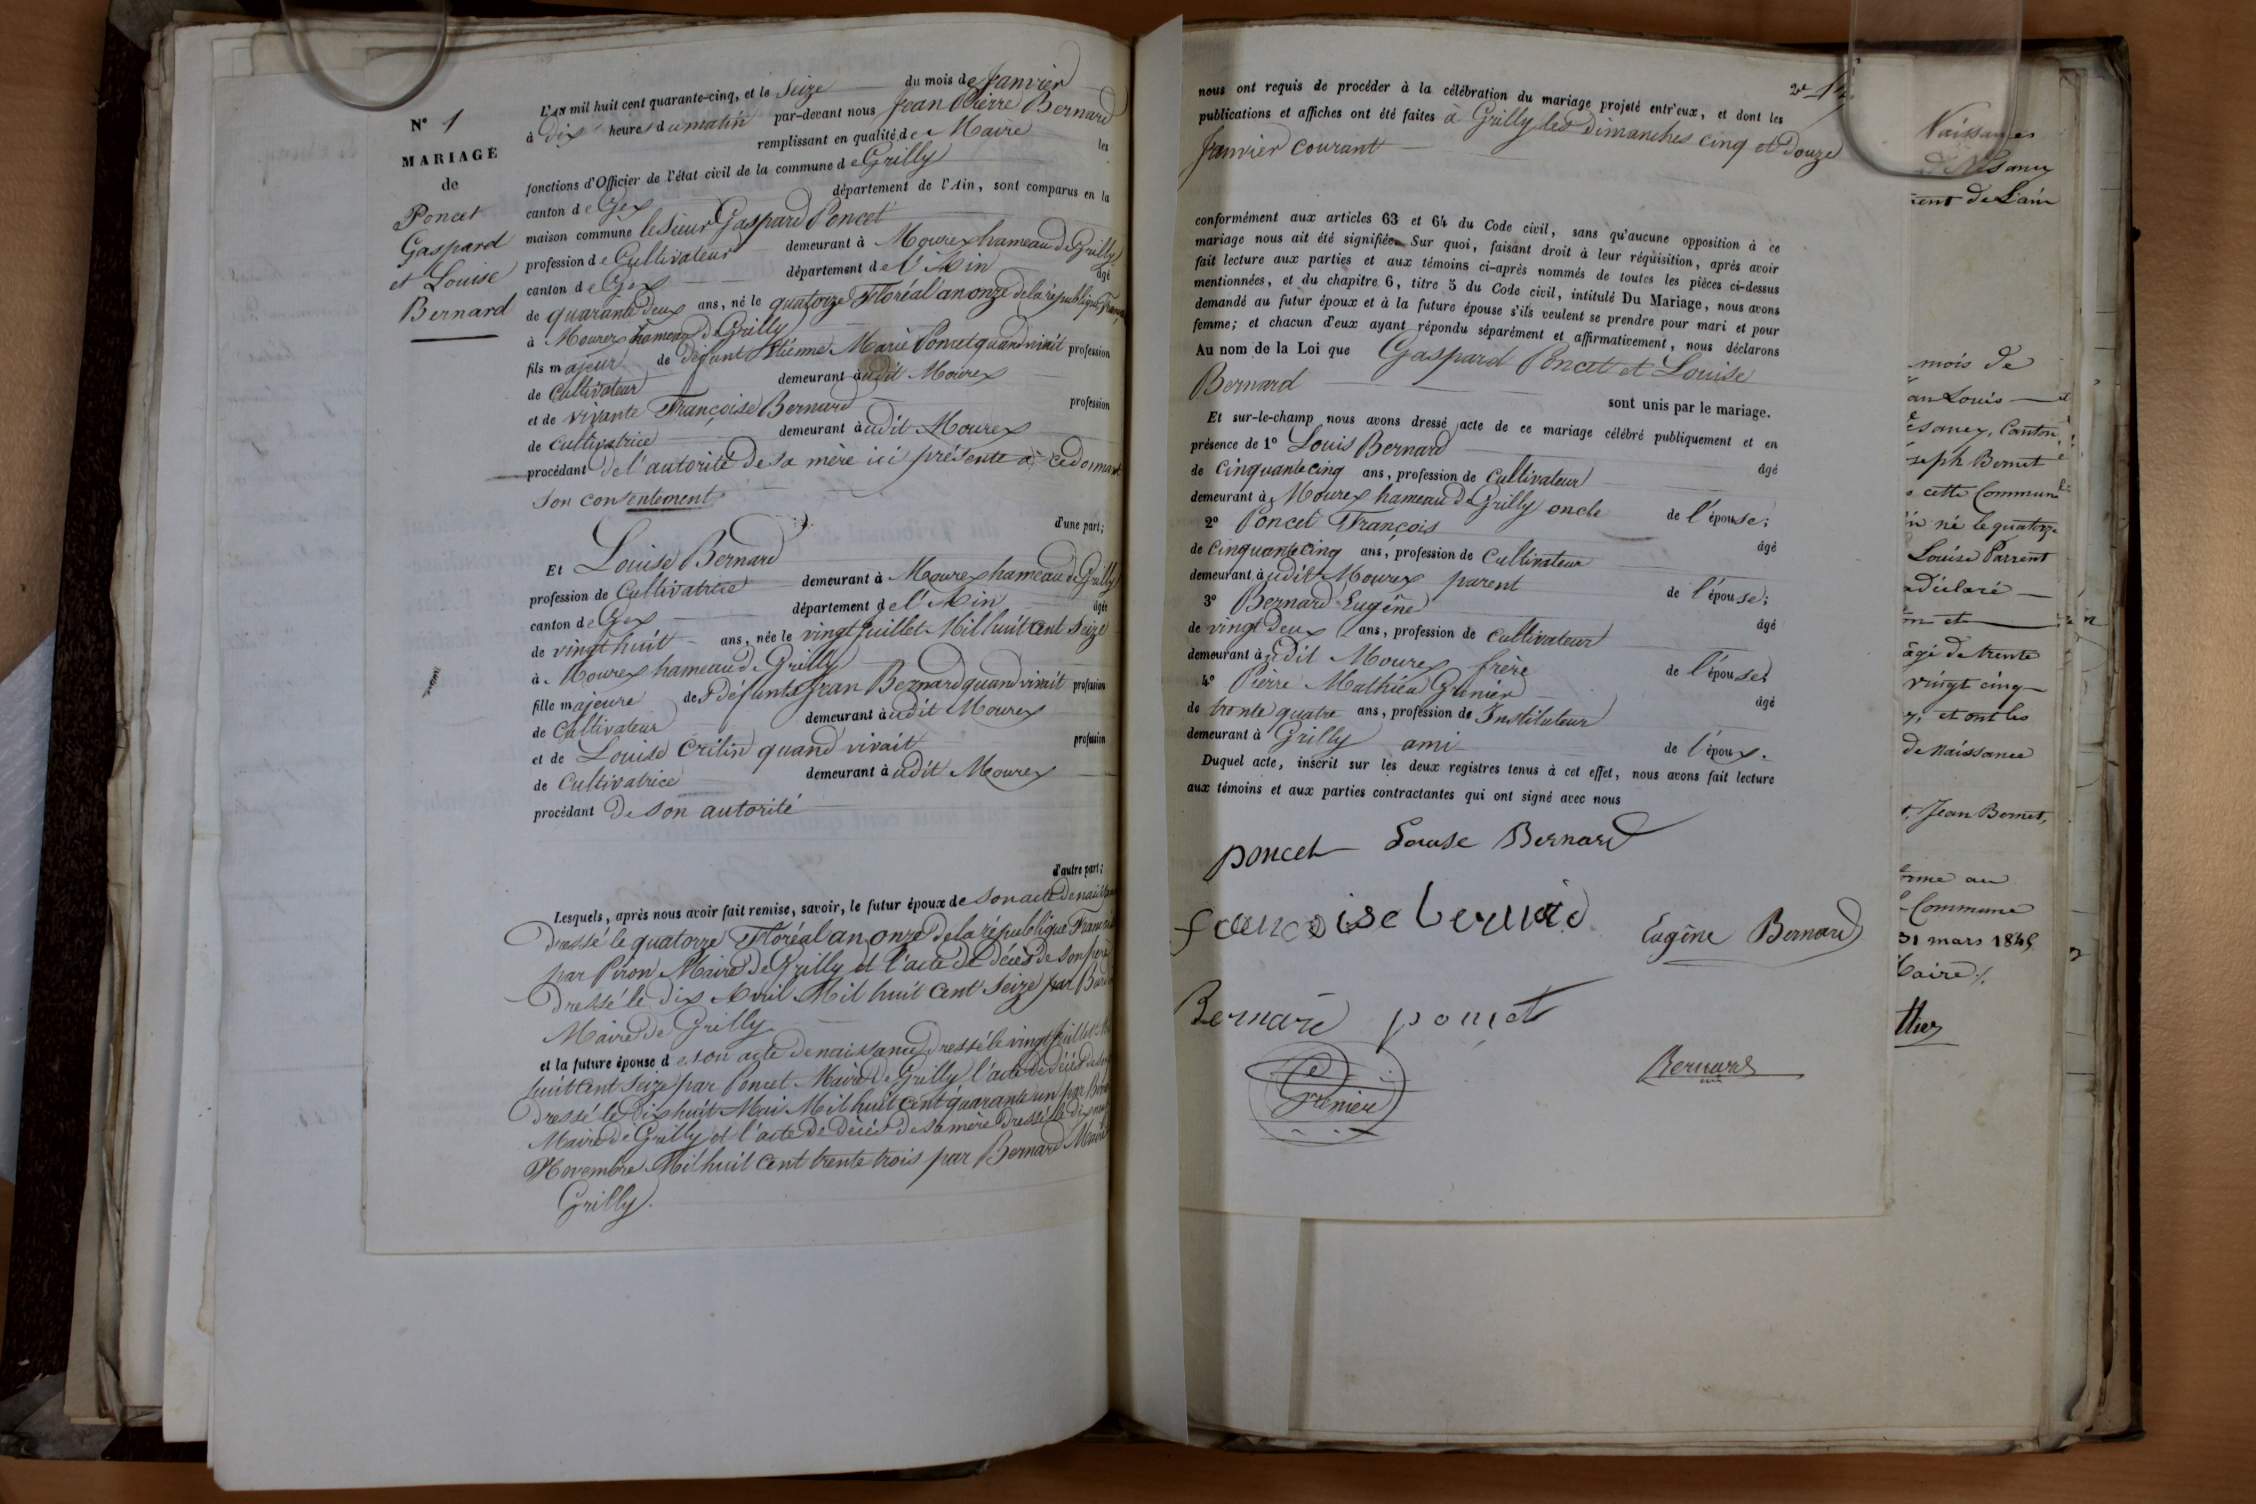 N° 1
MARIAGE
de
Poncet
Gaspard
et Louise
Bernard
L'an mil huit cent quarante-cinq, et le Seize du mois de Janvier
à dix heures du matin par-devant nous Jean Pierre Bernard
remplissant en qualité de Maire les
fonctions d'Officier de l'état civil de la commune de Grilly
canton de Gex département de l'Ain, sont comparus en la
maison commune le Sieur Gaspard Poncet
profession de Cultivateur demeurant à Mourex hameau de Grilly
canton de Gex département de l'Ain âgé
de quarante deux ans, né le quatorze Floréal an onze de la république
à Mourex hameau de Grilly
fils majeur de défunt Etienne Marie Poncet quand vivait profession
de cultivateur demeurant audit Mourex
et de vivante Françoise Bernard profession
de cultivatrice demeurant audit Mourex
procédant de l'autorité de sa mère ici présente à ce donnant
son consentement
d'une part;
Et Louise Bernard
profession de Cultivatrice demeurant à Mourex hameau de Grilly
canton de Gex département de l'Ain âgée
de vingt huit ans, née le vingt Juillet Mil huit cent Seize
à Mourex hameau de Grilly
fille majeure des défunts Jean Bernard quand vivait profession
de Cultivateur demeurant audit Mourex
et de Louise Critin quand vivait profession
de Cultivatrice demeurant audit Mourex
procédant de son autorité
d'autre part;
Lesquels, après nous avoir fait remise, savoir, le futur époux de son acte de
dressé le quatorze Floréal an onze de la république
par Piron Maire de Grilly et l'acte de décès de son père
dressé le dix Avril Mil huit Cent Seize par
Maire de Grilly
et la future épouse de son acte de naissance dressé le vingt Juillet
huit Cent Seize par Poncet Maire de Grilly, l'acte de décès de
dressé le Dix huit Mai Mil huit cent quarante un par
Maire de Grilly et l'acte de décès de sa mère dressé le dix
Novembre Mil huit Cent trente trois par Bernard Maire
Grilly.
nous ont requis de procéder à la célébration du mariage projeté entr'eux, et dont les
publications et affiches ont été faites à Grilly les Dimanches cinq et Douze
Janvier courant
conformément aux articles 63 et 64 du Code civil, sans qu'aucune opposition à ce
mariage nous ait été signifiée. Sur quoi, faisant droit à leur réquisition, après avoir
fait lecture aux parties et aux témoins ci-après nommés de toutes les pièces ci-dessus
mentionnées, et du chapitre 6, titre 5 du Code civil, intitulé Du Mariage, nous avons
demandé au futur époux et à la future épouse s'ils veulent se prendre pour mari et pour
femme; et chacun d'eux ayant répondu séparément et affirmativement, nous déclarons
Au nom de la Loi que Gaspard Poncet et Louise
Bernard
sont unis par le mariage.
Et sur-le-champ nous avons dressé acte de ce mariage célébré publiquement et en
présence de 1° Louis Bernard âgé
de Cinquante cinq ans, profession de Cultivateur
demeurant à Mourex hameau de Grilly oncle de l'épouse;
2° Poncet François âgé
de Cinquante cinq ans, profession de Cultivateur
demeurant audit Mourex parent de l'épouse;
3° Bernard Eugêne âgé
de vingt deux ans, profession de cultivateur
demeurant audit Mourex frère de l'épouse;
4° Pierre Mathieu Grenier âgé
de trente quatre ans, profession de Instituteur
demeurant à Grilly ami de l'époux.
Duquel acte, inscrit sur les deux registres tenus à cet effet, nous avons fait lecture
aux témoins et aux parties contractantes qui ont signé avec nous
poncet Louise Bernard
francoise bernard
Eugêne Bernard
Bernard poncet
Bernard
Grenier
Naissances
mois de
an Louis
Canton
seph Bornet
cette Commune
né le quatorze
Louise Parrent
déclaré
et
âgé de trente
vingt cinq
et ont les
de Naissance
Jean Bornet,
au
Commune
31 mars 1845